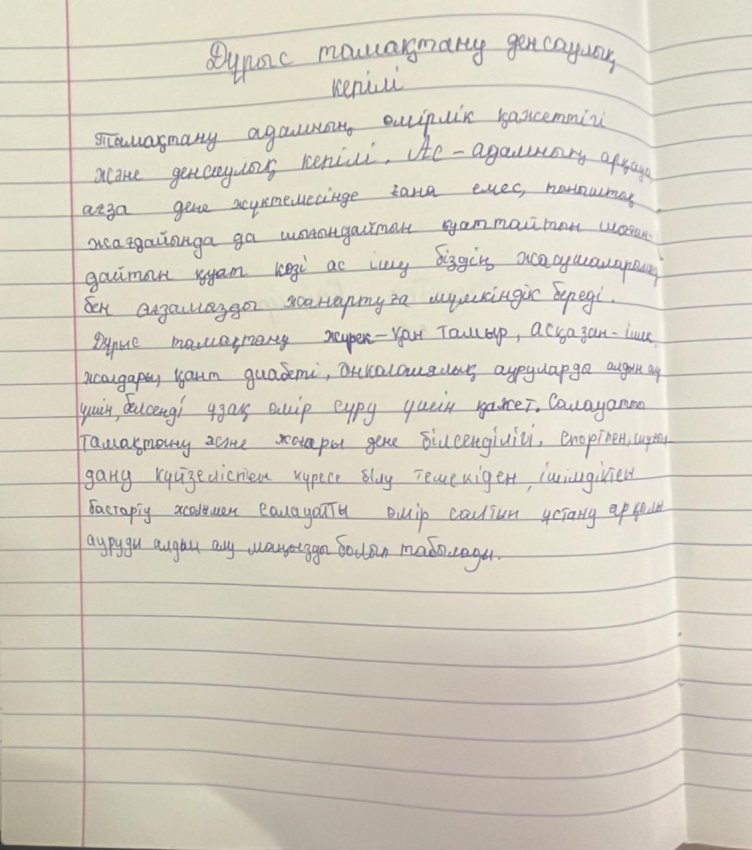 Дұрыс тамақтану денсаулық
кепілі
Тамақтану адамның өмірлік қажеттігі
және денсаулық кепілі. Ас – адамның арқада
ағза дене жүктемесінде ғана емес, тыныштық
жағдайында да шығындайтын қуаттайтын шығын-
дайтын қуат көзі ас ішу біздің жасушаларымыз
бен ағзамызды жаңартуға мүмкіндік береді.
Дұрыс тамақтану жүрек – қан тамыр, асқазан - ішек
жолдары, қант диабеті, онкологиялық ауруларды алдын алу
үшін, белсенді ұзақ өмір сүру үшін қажет. Салауатты
тамақтану және жоғары дене білсенділігі, спортпен шұғыл
дану күйзеліспен күресе білу темекіден, ішімдіктен
бастарту жолымен салауатты өмір салтын ұстану арқылы
ауруды алдын алу маңызды болып табылады.